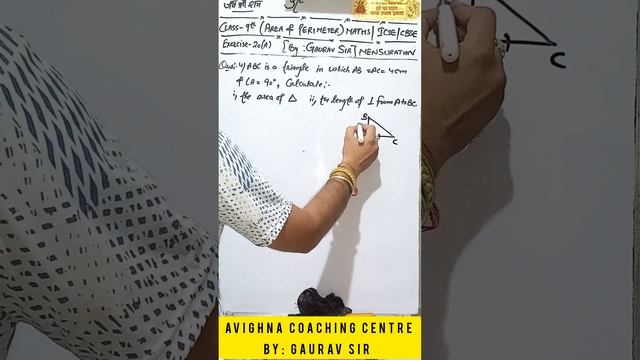 जय श्री राम
CLASS-9th (AREA & PERIMETER) MATHS/ICSE/CBSE
EXERCISE-20(A) {By: GAURAV SIR} MENSURATION
Que:4) ABC is a triangle in which AB =AC= 4cm
& ∠A= 90°, Calculate:-
i, the area of △ ii, the length of ⊥ from A to BC.
B
C
C
AVIGHNA COACHING CENTRE
BY: GAURAV SIR